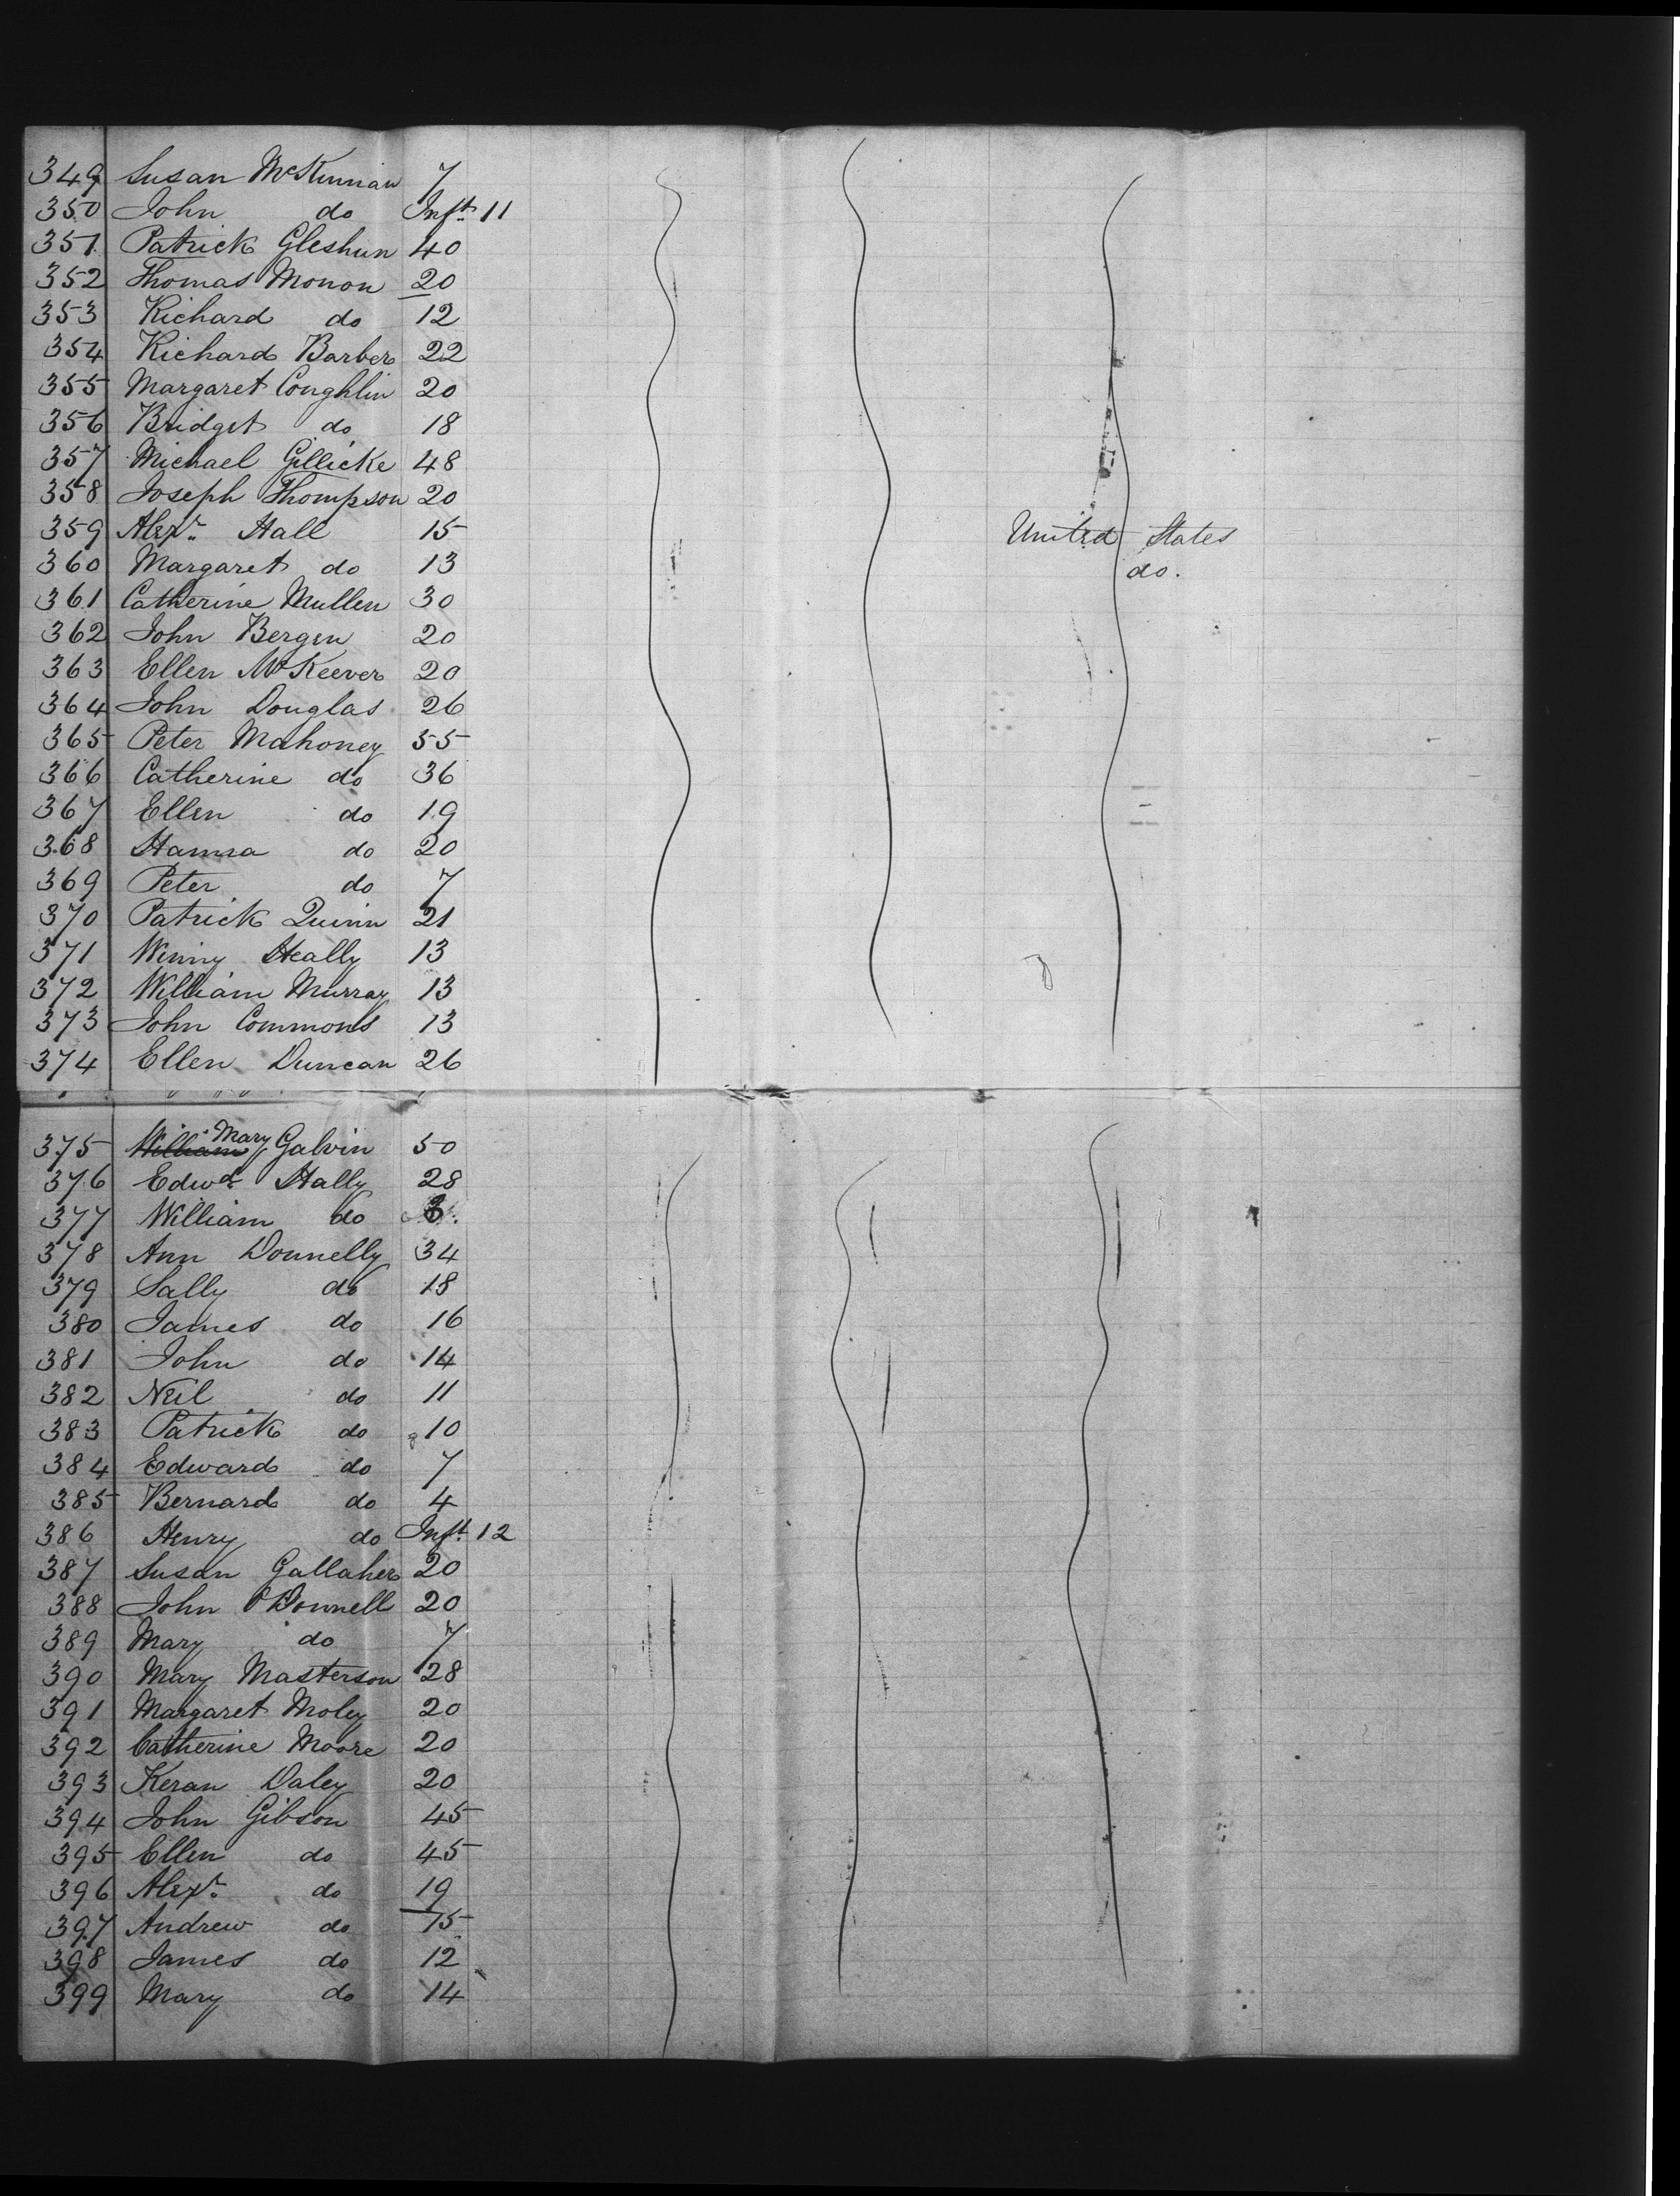 349 Susan McKinnian 7
350 John do Inft. 11
351 Patrick Gleshun 40
352 Thomas Monon 20
353 Richard do 12
354 Richard Barber 22
355 Margaret Coughlin 20
356 Bridget do 18
357 Michael Gillicke 48
358 Joseph Thompson 20
359 Alexr. Hall 15 United States
360 Margaret do 13 do.
361 Catherine Mullen 30
362 John Bergen 20
363 Ellen McKeever 20
364 John Douglas 26
365 Peter Mahoney 55
366 Catherine do 36
367 Ellen do 19
368 Hanna do 20
369 Peter do 7
370 Patrick Quinn 21
371 Winny Heally 13
372 William Murray 13
373 John Commons 13
374 Ellen Duncan 26
375 William Mary Galvin 50
376 Edwd. Hally 28
377 William do 3
378 Ann Donnelly 34
379 Sally do 18
380 James do 16
381 John do 14
382 Neil do 11
383 Patrick do 10
384 Edward do 7
385 Bernard do 4
386 Henry do Inft. 12
387 Susan Gallaher 20
388 John O'Donnell 20
389 Mary do 7
390 Mary Masterson 28
391 Margaret Moley 20
392 Catherine Moore 20
393 Keran Daley 20
394 John Gibson 45
395 Ellen do 45
396 Alexr. do 19
397 Andrew do 15
398 James do 12
399 Mary do 14